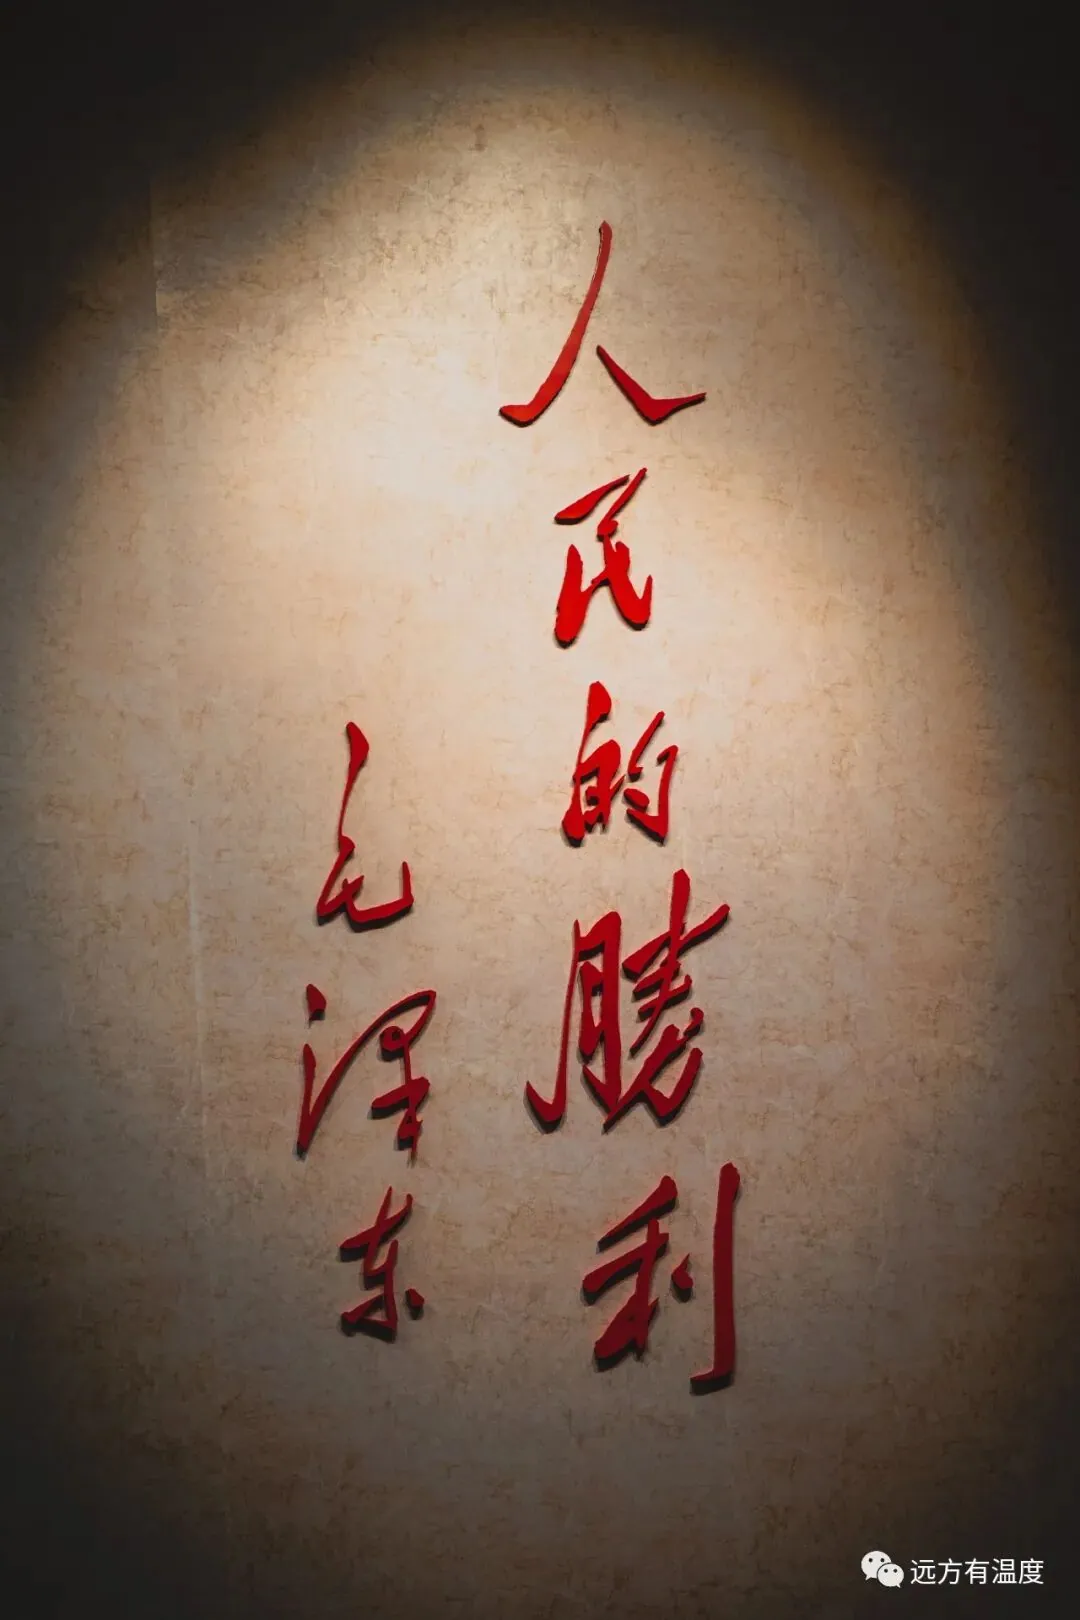 人民的勝利
毛泽东
远方有温度